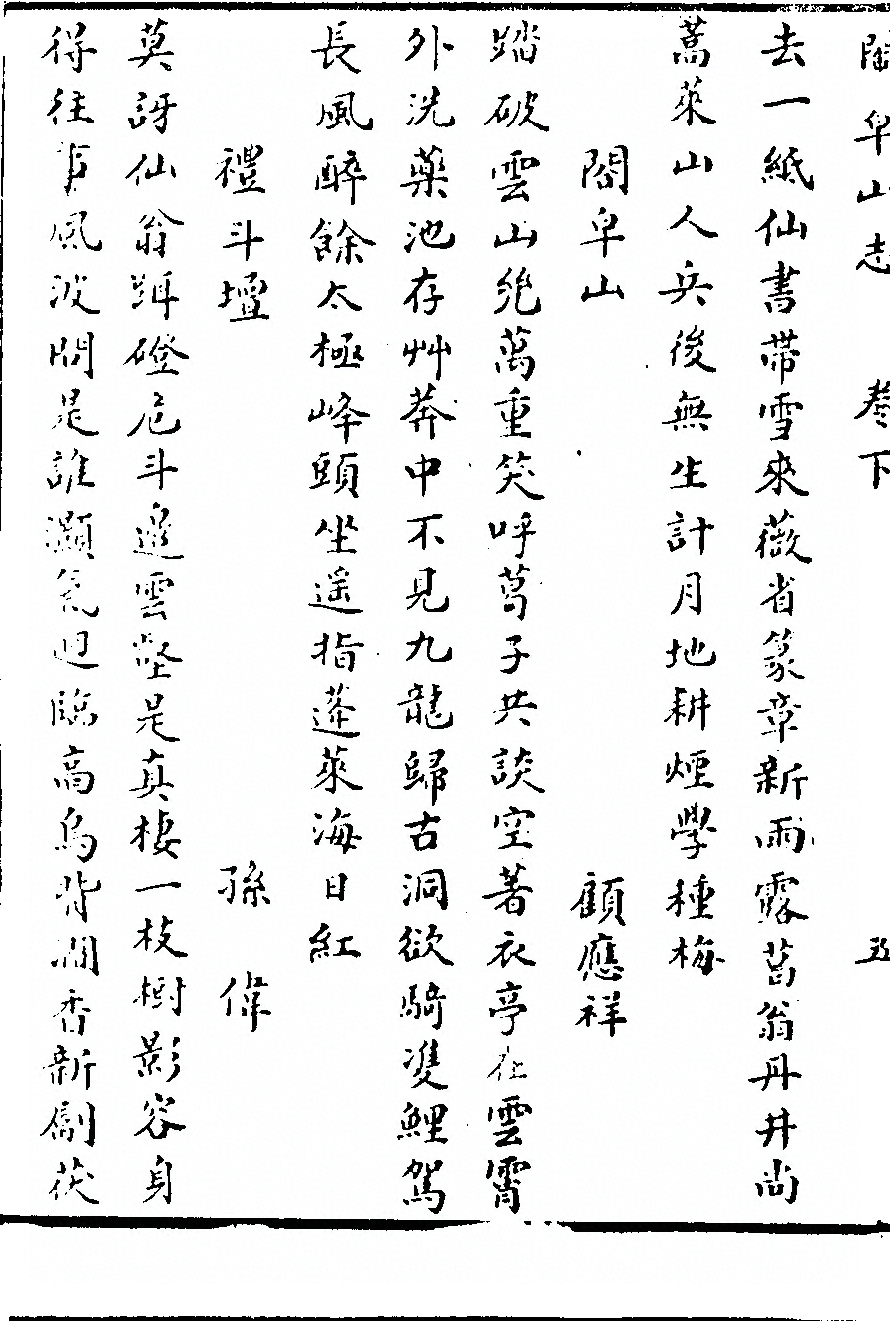 閤皁山志 卷下 五
去一紙仙書帶雪來薇省篆章新雨露葛翁丹井尚
蒿萊山人兵後無生計月地耕煙學種梅
閤皁山 顧應祥
踏破雲山絶萬重笑呼葛子共談空著衣亭在雲霄
外洗藥池存艸莽中不見九龍歸古洞欲騎雙鯉駕
長風醉餘太極峰頭坐遥指蓬萊海日紅
禮斗壇 孫偉
莫訝仙翁躡磴危斗邉雲壑是真棲一枝樹影容身
得往事風波問是誰灝氣迥臨高鳥背澗香新斸茯